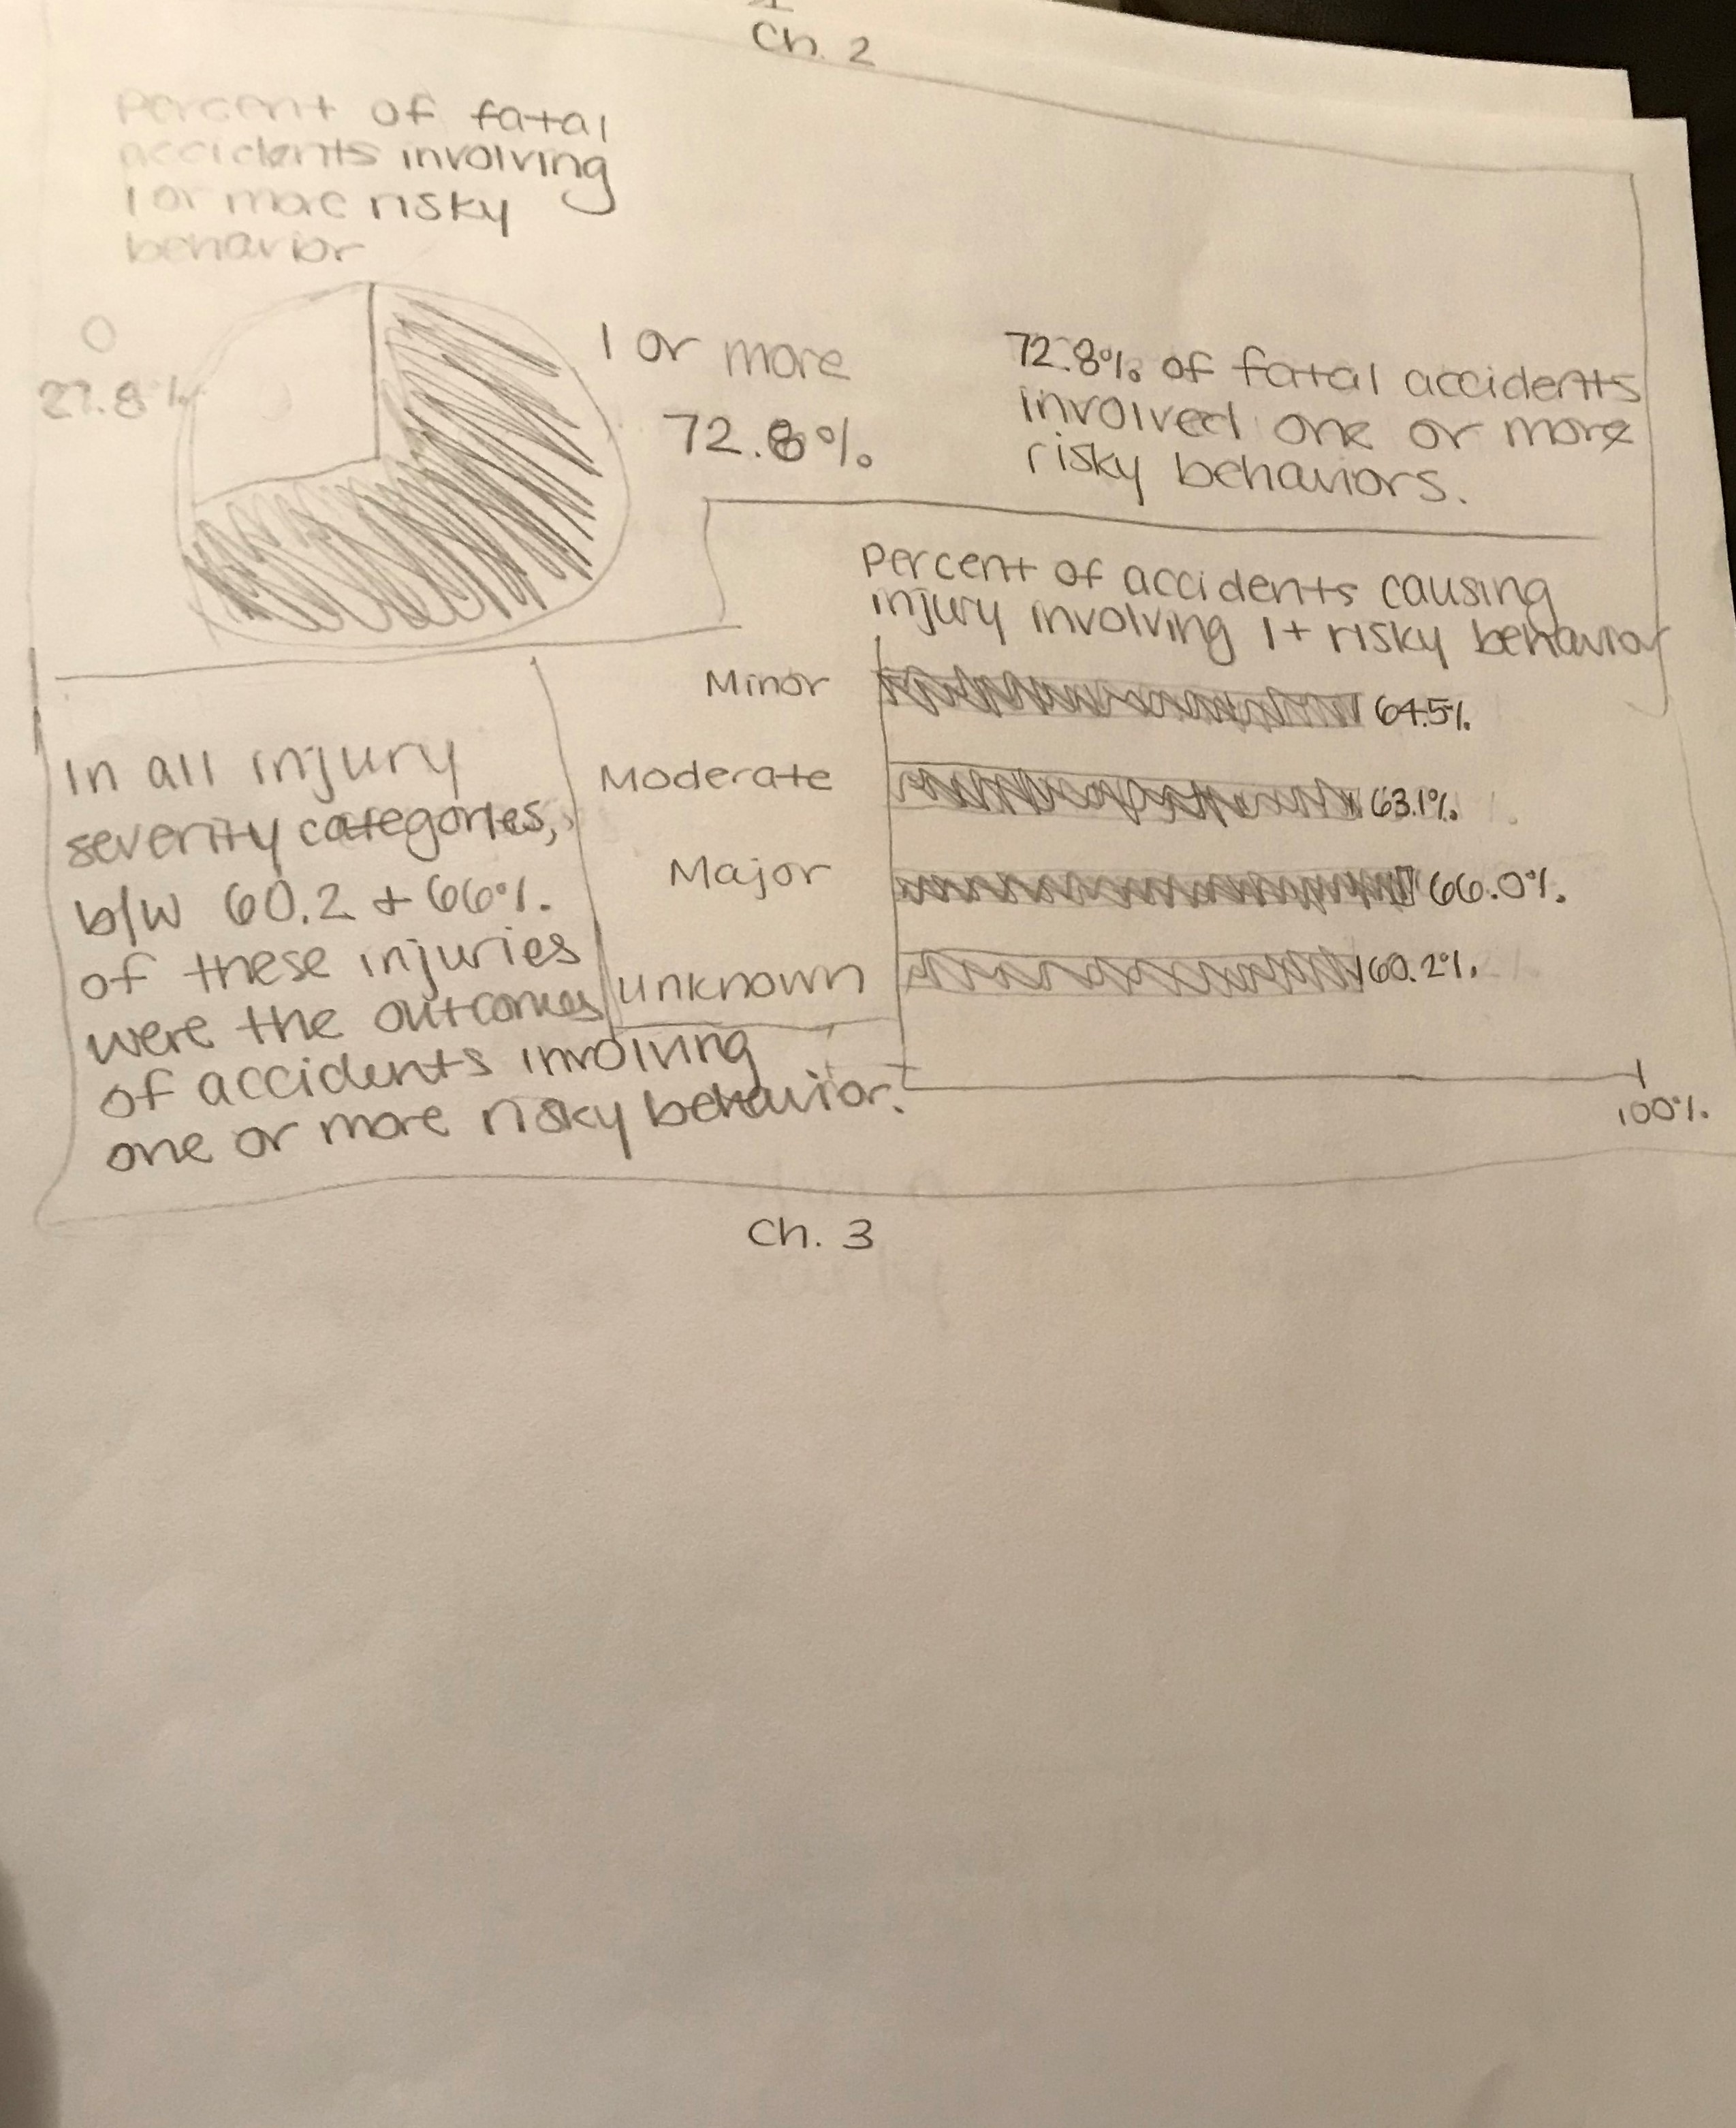 Ch. 2
Percent of fatal
accidents involving
1 or more risky
behavior
0
27.8%
1 or more
72.8%
72.8% of fatal accidents
involved one or more
risky behaviors.
Percent of accidents causing
injury involving 1+ risky behavior
Minor 64.5%
Moderate 63.1%
Major 66.0%
Unknown 60.2%
100%
In all injury
severity categories,
b/w 60.2 + 66%
of these injuries
were the outcomes
of accidents involving
one or more risky behavior.
Ch. 3